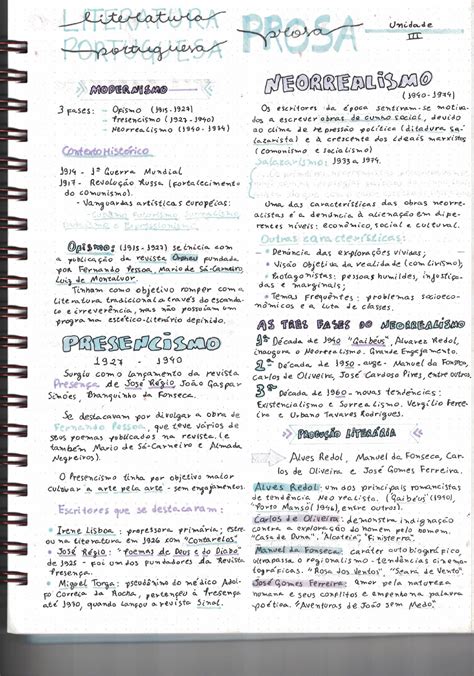 LITERATURA PORTUGUESA
literatura portuguesa
PROSA
prosa
Unidade III
MODERNISMO
3 fases: - Opismo (1915-1927)
- Presencismo (1927-1940)
- Neorrealismo (1940-1974)
Contexto Histórico
1914 - 1ª Guerra Mundial
1917 - Revolução Russa (fortalecimento
do comunismo).
- Vanguardas artísticas européias:
Cubismo Futurismo
Opismo: (1915-1927) se inicia com
a publicação da revista Orpheu fundada
por Fernando Pessoa, Mario de Sá-Carneiro
Luiz de Montalvor.
Tinham como objetivo romper com a
literatura tradicional através do escandalo
e irreverência, mas não possuíam um
programa estético-literário definido.
PRESENCISMO
1927 - 1940
Surgiu com o lançamento da revista
Presença de José Régio, João Gaspar
Simões, Branquinho da Fonseca.
Se destacavam por divulgar a obra de
Fernando Pessoa, que teve vários de
seus poemas publicados na revista. (e
também Mario de Sá-Carneiro e Almada
Negreiros).
O Presencismo tinha por objetivo maior
cultivar a arte pela arte - sem engajamentos.
Escritores que se destacaram:
• Irene Lisboa: professora primária; estreou
na Literatura em 1926 com "Contarelos"
• José Régio: "Poemas de Deus e do Diabo"
de 1925 - foi um dos fundadores da Revista
Presença.
• Miguel Torga: pseudônimo do médico Adolfo
Correia da Rocha, pertenceu à Presença
até 1930, quando lançou a revista Sinal.
NEORREALISMO
(1940-1974)
Os escritores da época sentiram-se motivados
a escrever obras de cunho social, devido
ao clima de repressão política (ditadura salazarista)
e à crescente dos ideais marxistas
(comunismo e socialismo)
Salazarismo: 1933 a 1974.
Uma das características das obras neorrealistas
é a denúncia à alienação em diferentes
níveis: econômico, social e cultural.
Outras características:
- Denúncia das explorações vividas;
- Visão objetiva da realidade
• Protagonistas: pessoas humildes, injustiçadas
e marginais;
- Temas frequentes: problemas socioeconômicos
e a luta de classes.
AS TRÊS FASES DO NEORREALISMO
1ª Década de 1940 "Gaibéus", Alvarez Redol,
inaugura o Neorrealismo. Grande Engajamento.
2ª Década de 1950 - auge - Manuel da Fonseca,
Carlos de Oliveira, José Cardoso Pires, entre outros.
3ª Década de 1960 - novas tendências:
Existencialismo e Surrealismo. Vergílio Ferreiro
e Urbano Tavares Rodrigues.
PRODUÇÃO LITERÁRIA
Alves Redol, Manuel da Fonseca, Carlos
de Oliveira e José Gomes Ferreira.
Alves Redol: um dos principais romancistas
de tendência Neo realista. (Gaibéus (1940),
"Porto Manso" (1946), entre outros).
Carlos de Oliveira: demonstra indignação
contra a exploração do homem pelo homem.
"Casa de Duna", "Alcateia", "Finisterra".
Manuel da Fonseca: caráter autobiográfico,
ultrapassa o regionalismo - tendências cinematográficas.
"Rosa dos Ventos", "Seara de Vento"
José Gomes Ferreira: amor pela natureza
humana e seus conflitos e empenho na palavra
poética. "Aventuras de João sem Medo".